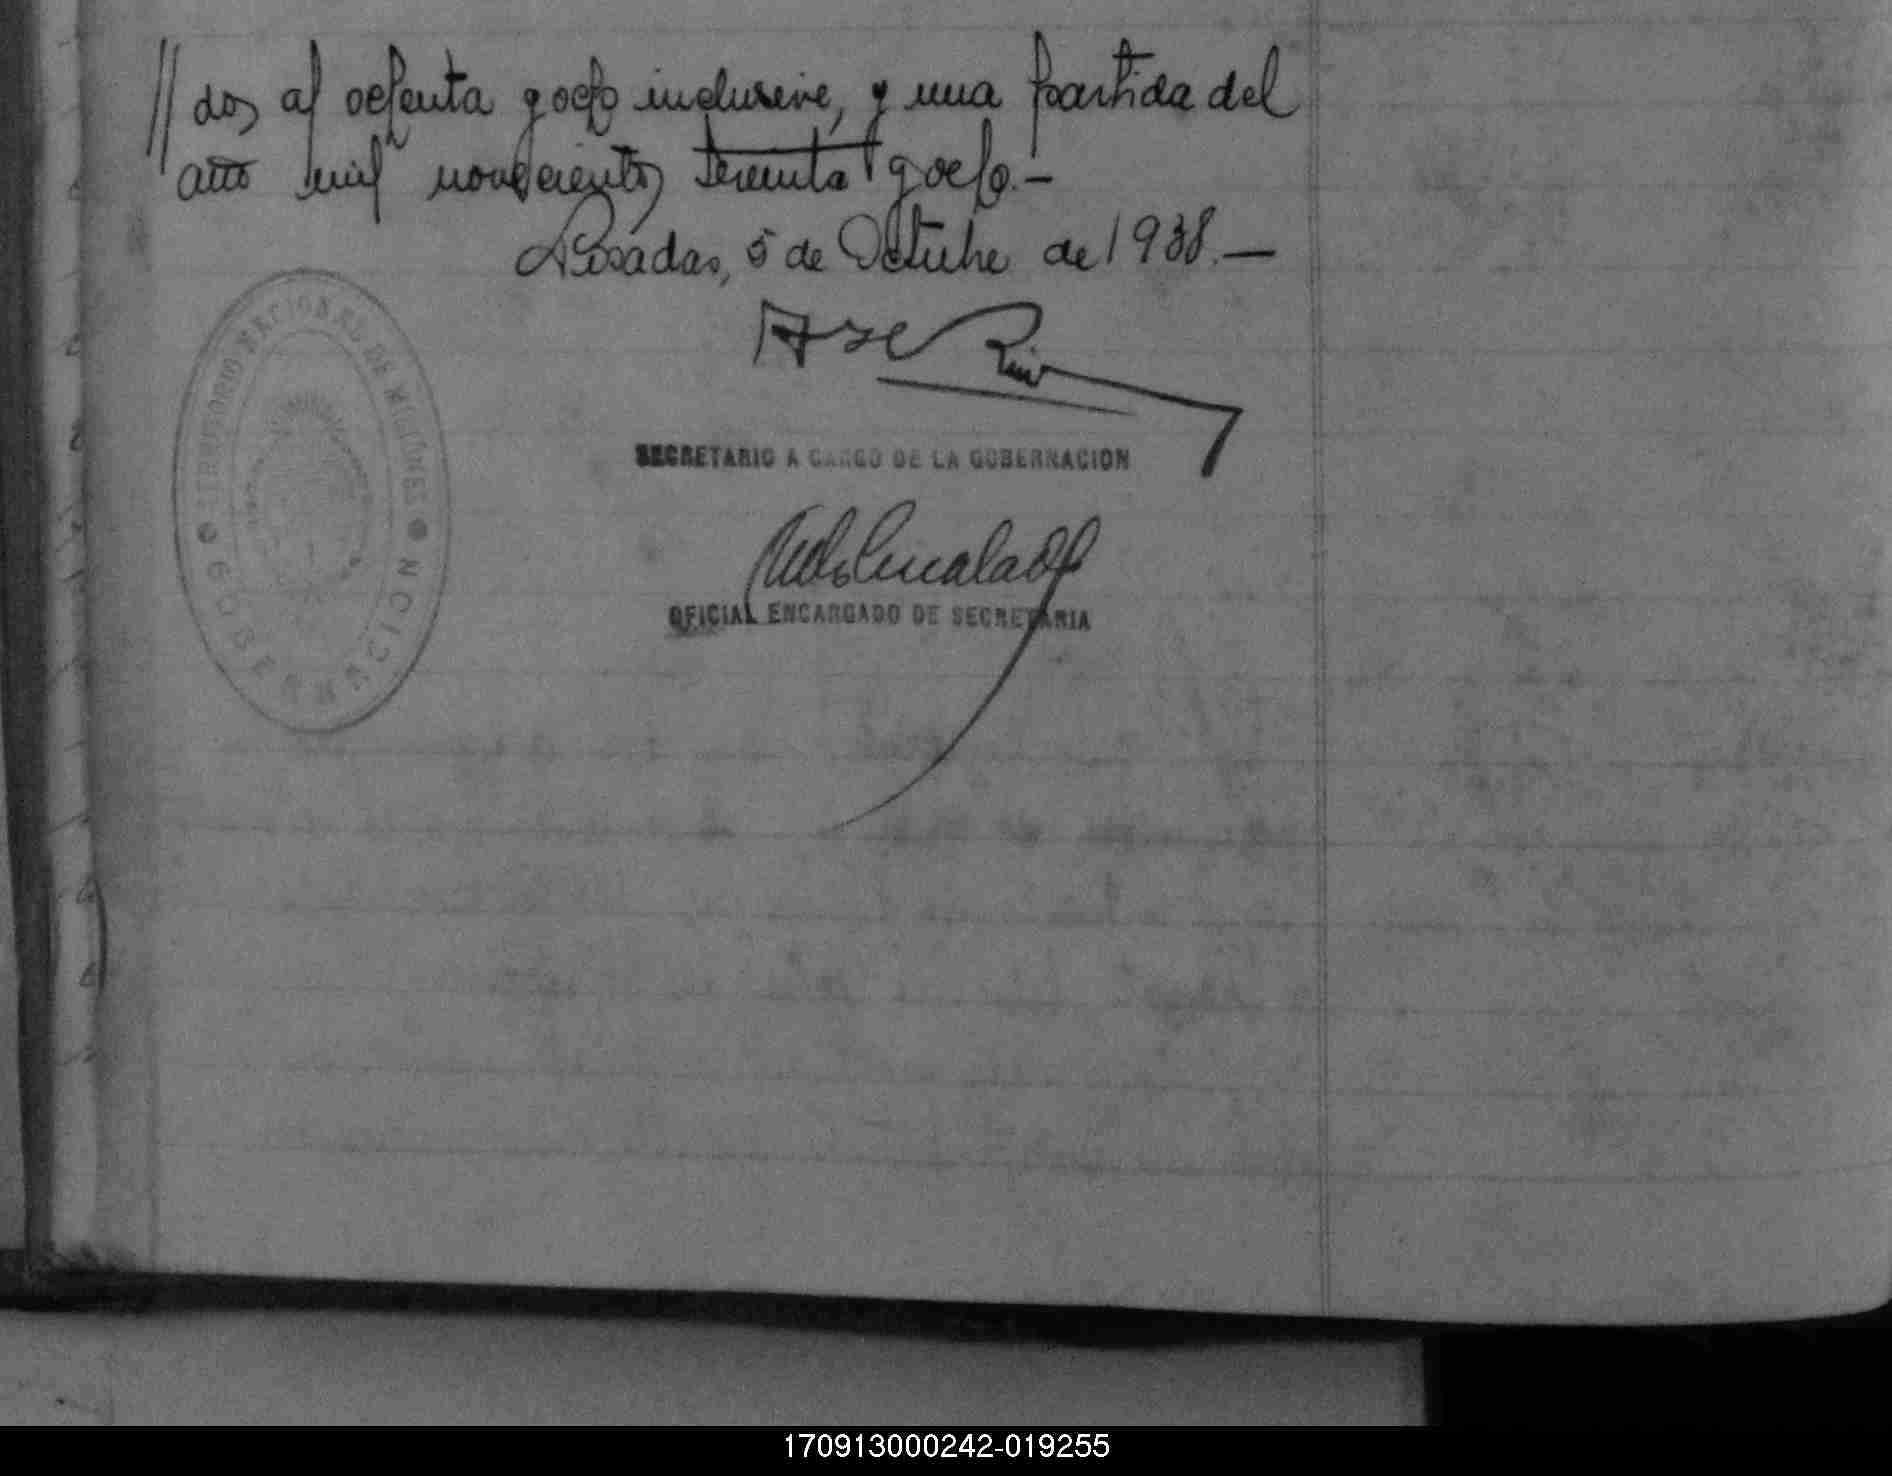 // dos al ochenta y ocho inclusive, y una partida del
año mil novecientos treinta y ocho.—
Posadas, 5 de Octubre de 1938.—
TERRITORIO NACIONAL DE MISIONES
GOBERNACION
SECRETARIO A CARGO DE LA GOBERNACION
OFICIAL ENCARGADO DE SECRETARIA
170913000242-019255